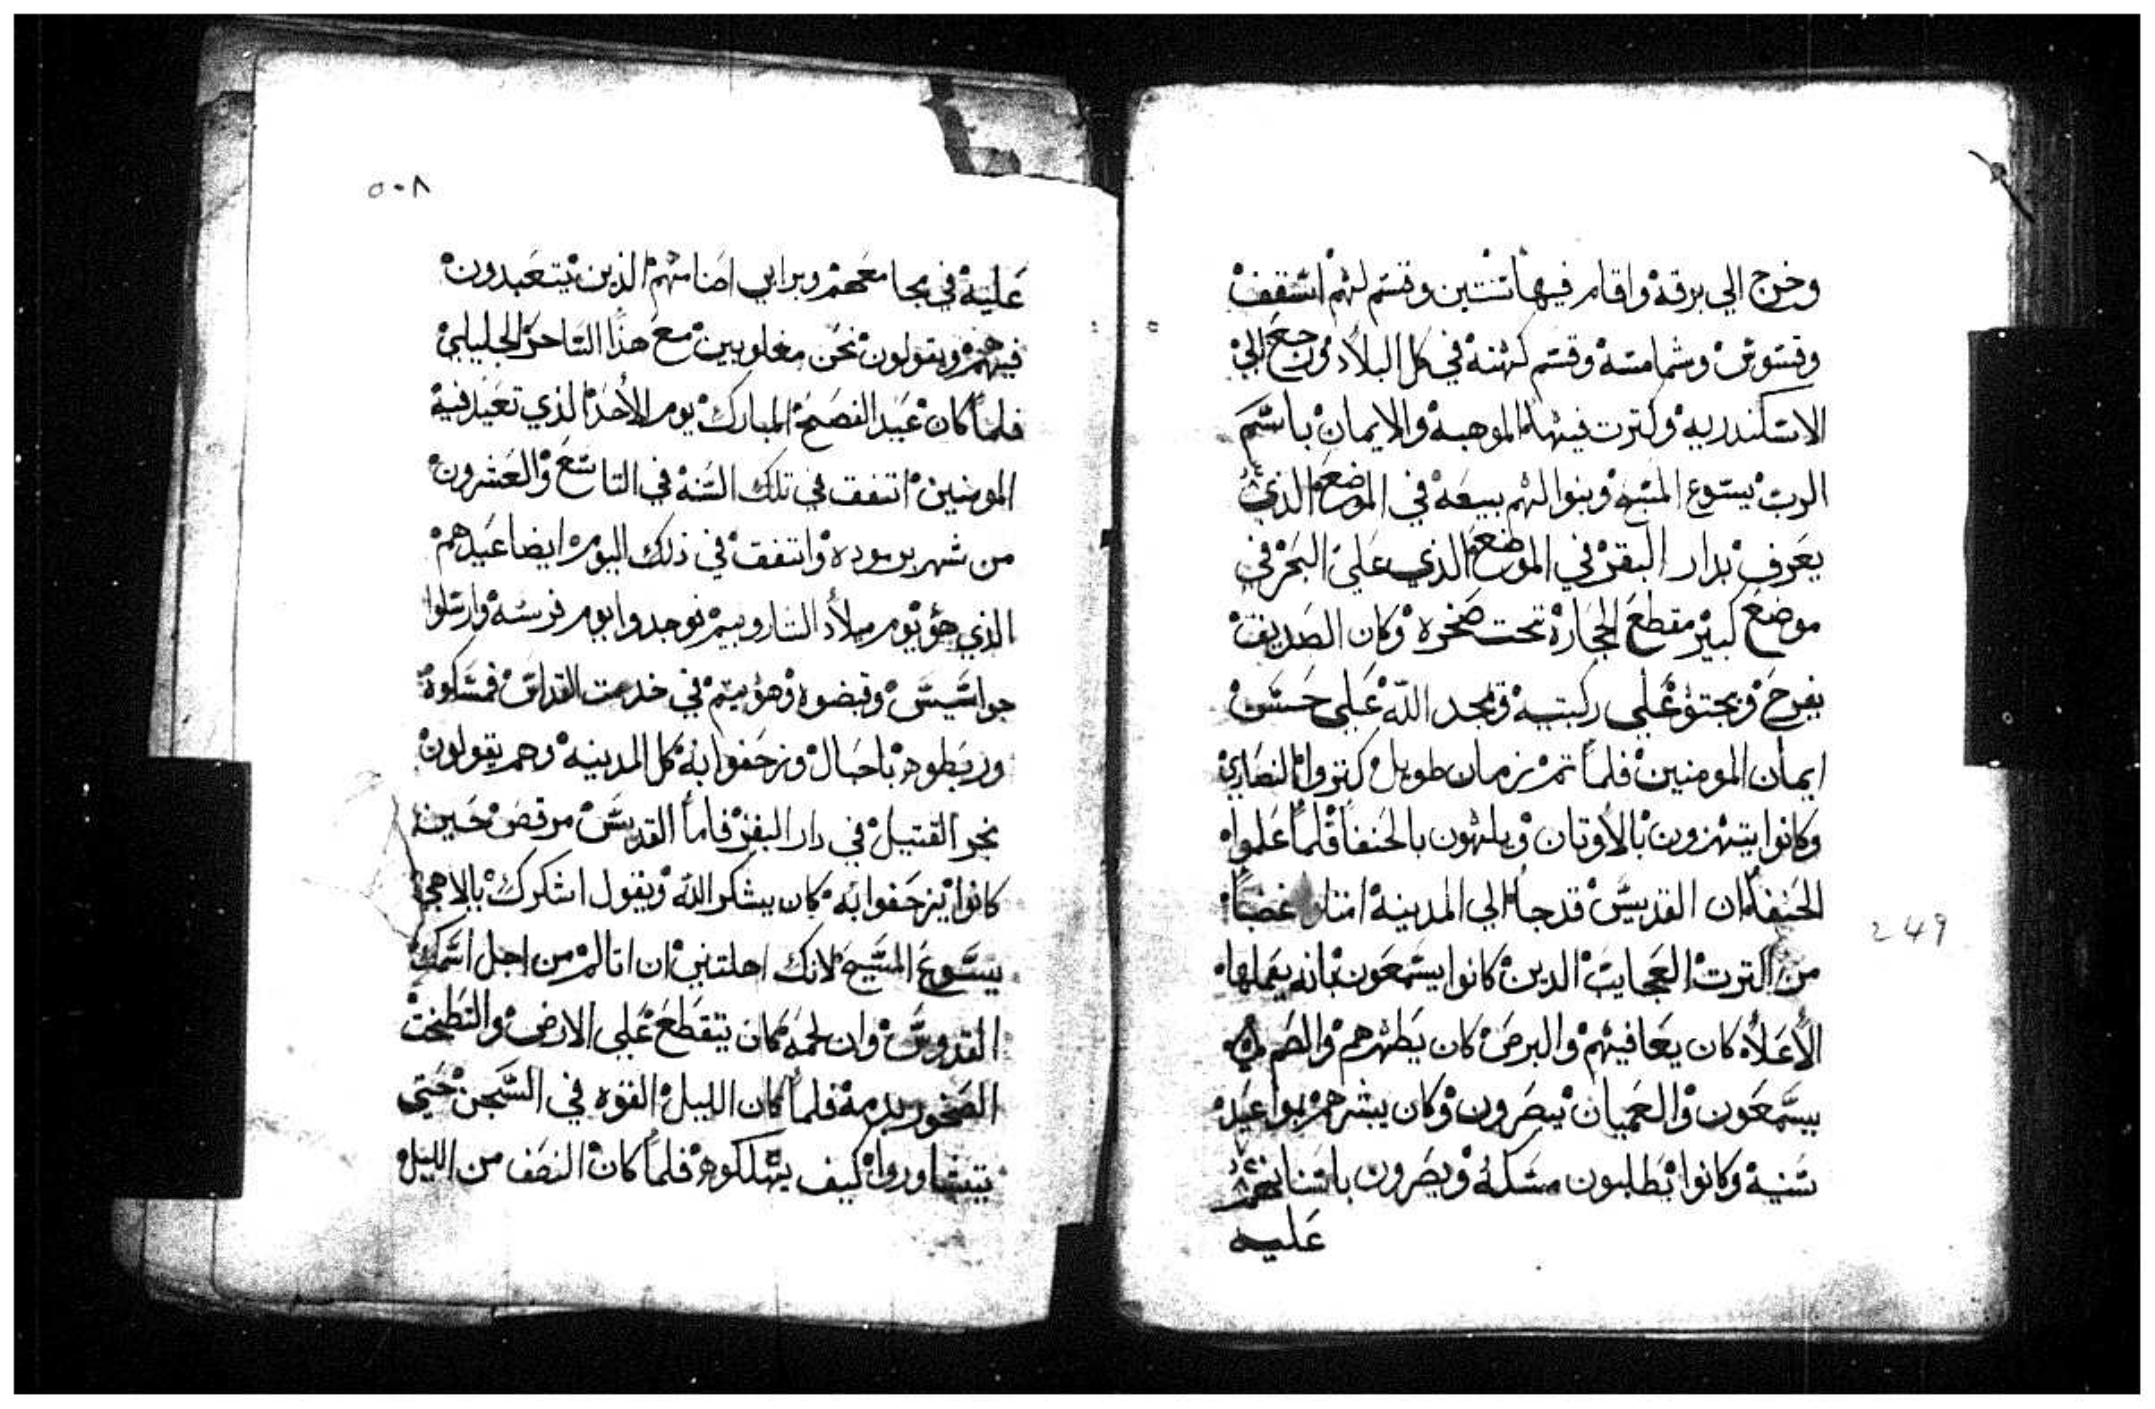 وخرج الي برقة واقام فيها سنتين وقسم لهم اسقف
وقسوس وشمامسة وقسم كهنة في كل البلاد ورجع الي
الاسكندريه وكترت فيها الموهبة والايمان باسم
الرب يسوع المسيح وبنوا لهم بيعة في الموضع الذي
يعرف بدار البقر في الموضع الذي علي البحر في
موضع كبير مقطع الحجارة تحت صخره وكان الصديق
يفرح ويجتو علي ركبتيه ويمجد الله علي حسن
ايمان المومنين فلما تم زمان طويل كتروا النصاري
وكانوا يتهزون بالاوتان ويلهون بالحنفا فلما علموا
الحنفا ان القديس قد جا الي المدينة امتلوا غضبا
من كترت العجايب الدين كانوا يسمعون بانه يعملها
الأعلاه كان يعافيهم والبرص كان يطهرهم والصم
يسمعون والعميان يبصرون وكان يبشرهم بمواعيد
سنية وكانوا يطلبون مسكه ويصرون باسنانهم
عليه
249
٥٠٨
عليه في مجامعهم وبرابي اصنامهم الذين يتعبدون
فيهم ويقولون نحن مغلوبين مع هذا الساحر الجليلي
فلما كان عيد الفصح المبارك يوم الأحد الذي تعيد فيه
المومنين اتفق في تلك السنة في التاسع والعشرون
من شهر برموده واتفق في ذلك اليوم ايضا عيدهم
الذي هو يوم ميلاد الساروبيم فوجدوا يوم فرسة وارسلوا
جواسيس وقبضوه وهو يتم في خدمت القداس فمسكوه
وربطوه باحبال وزحفوا به كل المدينة وهم يقولون
نجر القتيل في دار البقر فاما القديس مرقص حين
كانوا يزحفوا به كان يشكر الله ويقول اشكرك يالاهي
يسوع المسيح لانك اهلتني ان اتالم من اجل اسمك
القدوس وان لحمه كان يتقطع علي الارض والتطخت
الصخور بدمه فلما كان الليل القوه في السجن حتي
يتشاوروا كيف يهلكوه فلما كان النصف من الليل